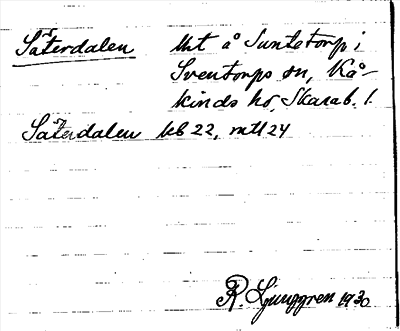 Säterdalen Uht å Suntetorp i
Sventorps sn, Kå-
kinds hd, Skarab. l.
Säterdalen kb 22, mtl 24
R. Ljunggren 1930